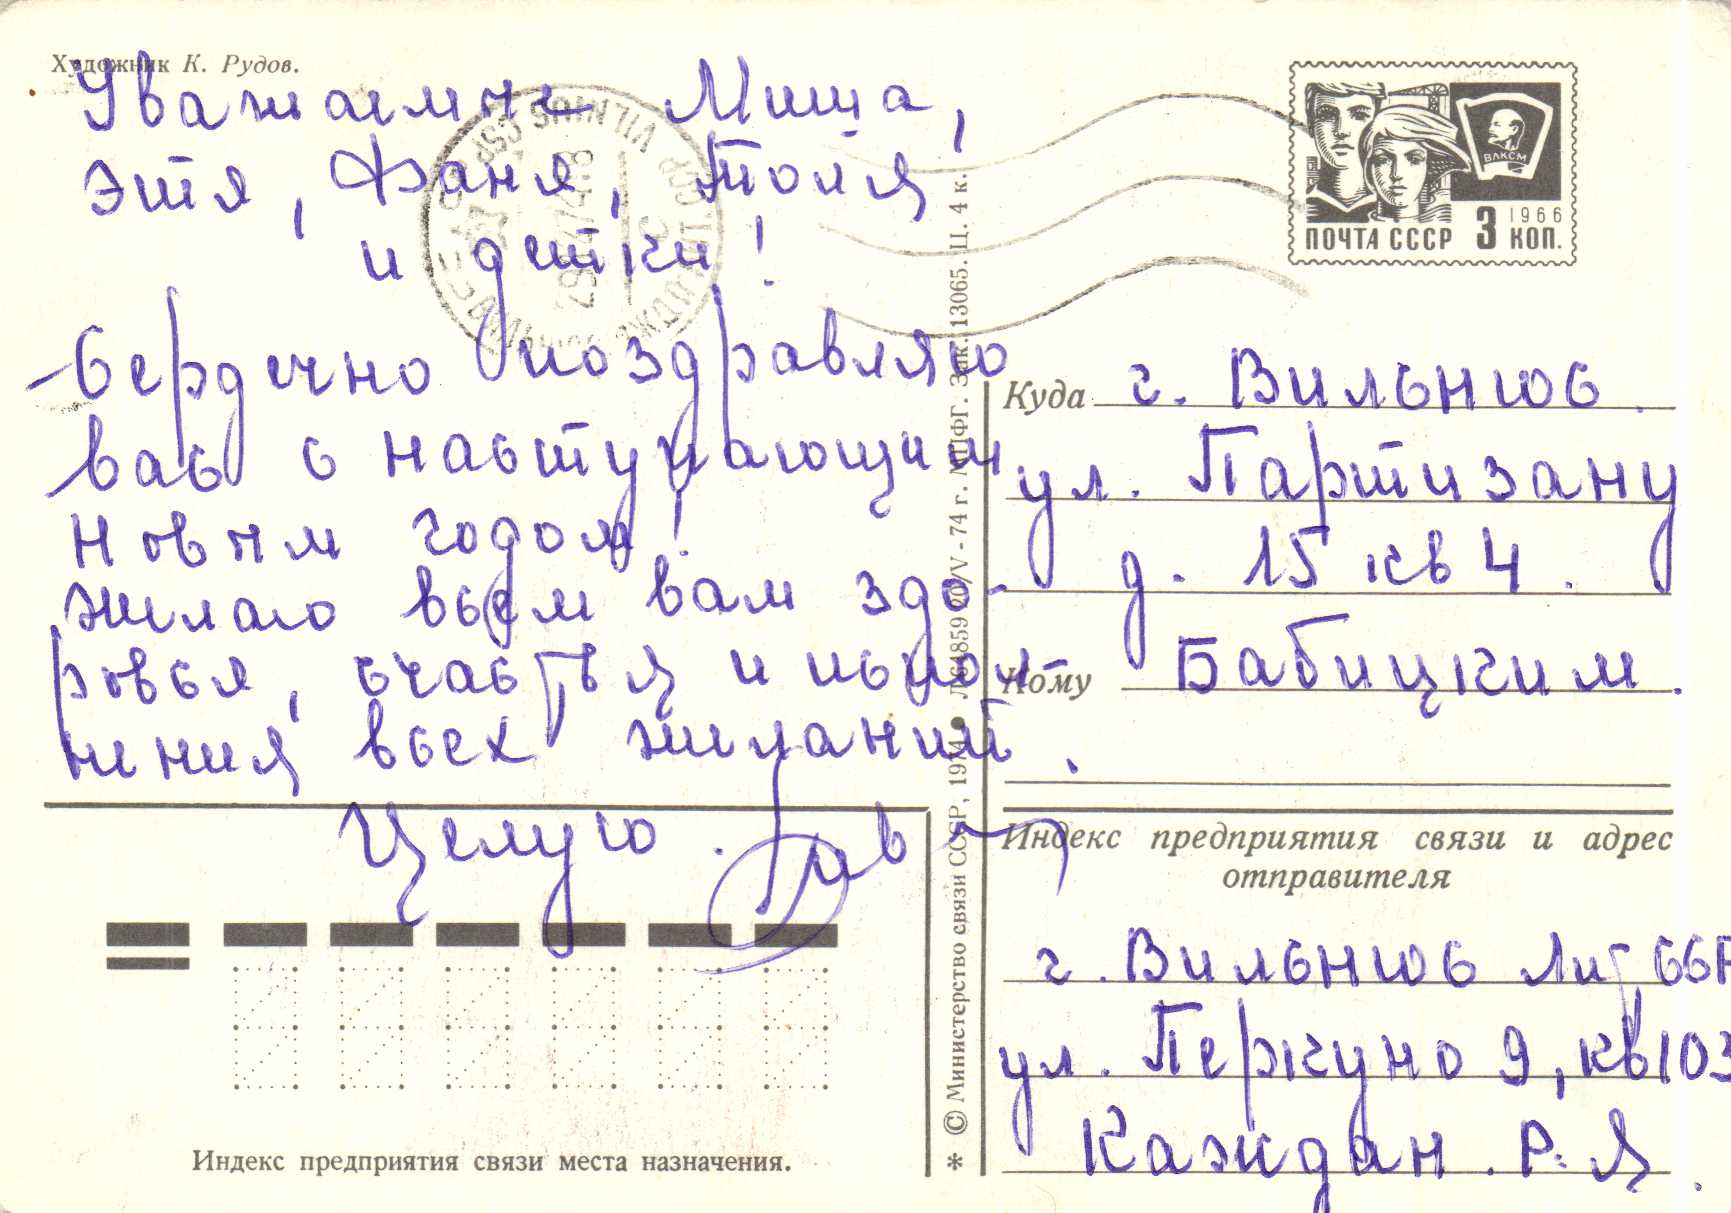 Художник К. Рудов.
Уважаемые Миша,
Этя, Фаня, Толя
и детки!
Сердечно поздравляю
вас с наступающим
Новым годом!
Желаю всем вам здо-
ровья, счастья и испол
нения всех желаний.
Целую.
ВЛКСМ
1966
ПОЧТА СССР 3 КОП.
Куда г. Вильнюс.
ул. Партизану
д. 15 кв 4.
Кому Бабицким.
Индекс предприятия связи и адрес
отправителя
г. Вильнюс Лит
ул. Перкуно 9, кв 103
Каждан. Р. Я.
Индекс предприятия связи места назначения.
* © Министерство связи СССР, 1974 • 20/V-74 г. МПФГ. Зак. 13065. Ц. 4 к.
VILNIUS